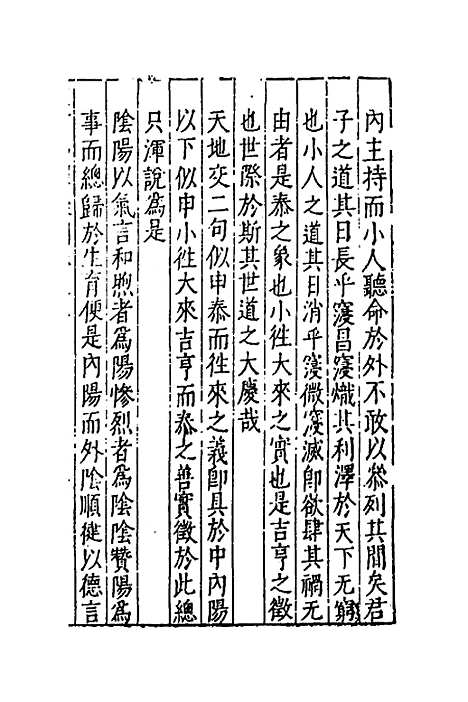 內主持而小人聽命於外不敢以叅列其間矣君
子之道其日長乎寖昌寖熾其利澤於天下无窮
也小人之道其日消乎寖微寖滅卽欲肆其禍无
由者是泰之象也小徃大來之實也是吉亨之徵
也世際於斯其世道之大慶哉
天地交二句似申泰而徃來之義卽具於中內陽
以下似申小徃大來吉亨而泰之善實徵於此總
只渾說爲是
陰陽以氣言和煦者爲陽慘烈者爲陰陰贊陽爲
事而總歸於生育便是內陽而外陰順健以德言